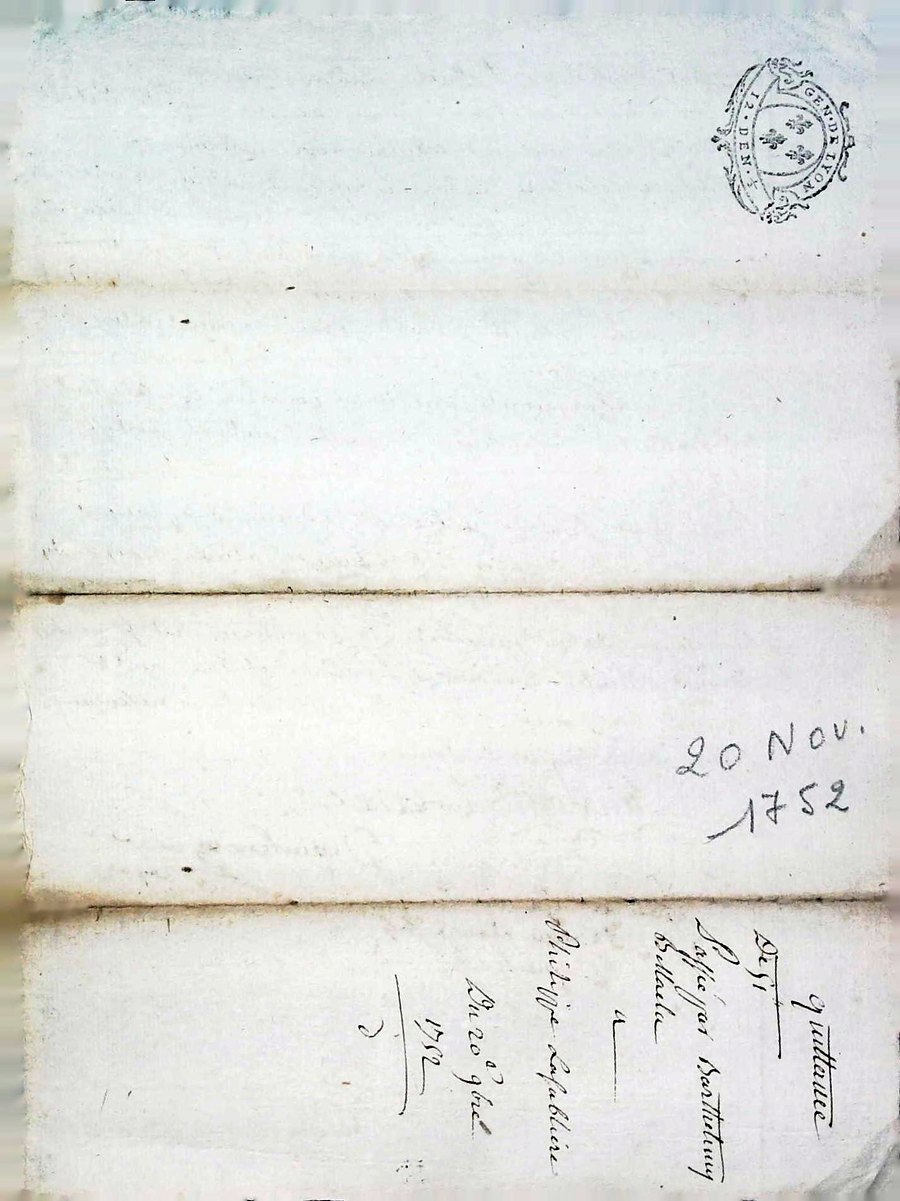 GEN·DE LYON
12·DEN·
20 Nov.
1752
quittance
De 51
passé par Barthelemy
a
Philippe Lafabliere
Du 20e 9bre
1752